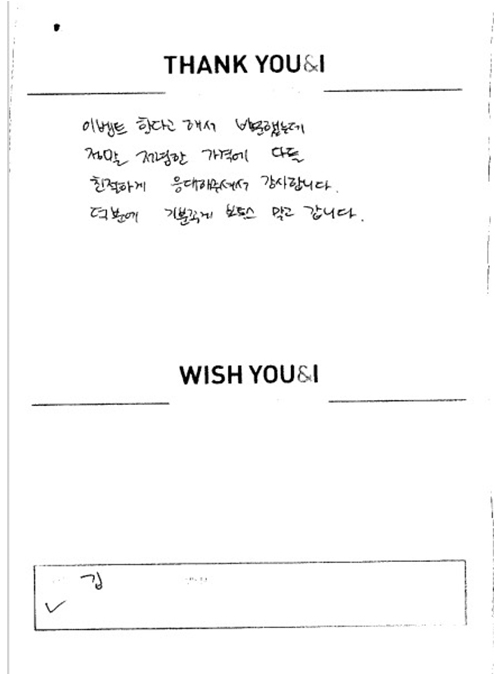 THANK YOU&I
이벤트 한다고 해서 방문했는데
정말 저렴한 가격에 다들
친절하게 응대해주셔서 감사합니다.
덕분에 기분좋게 보톡스 맞고 갑니다.
WISH YOU&I
김